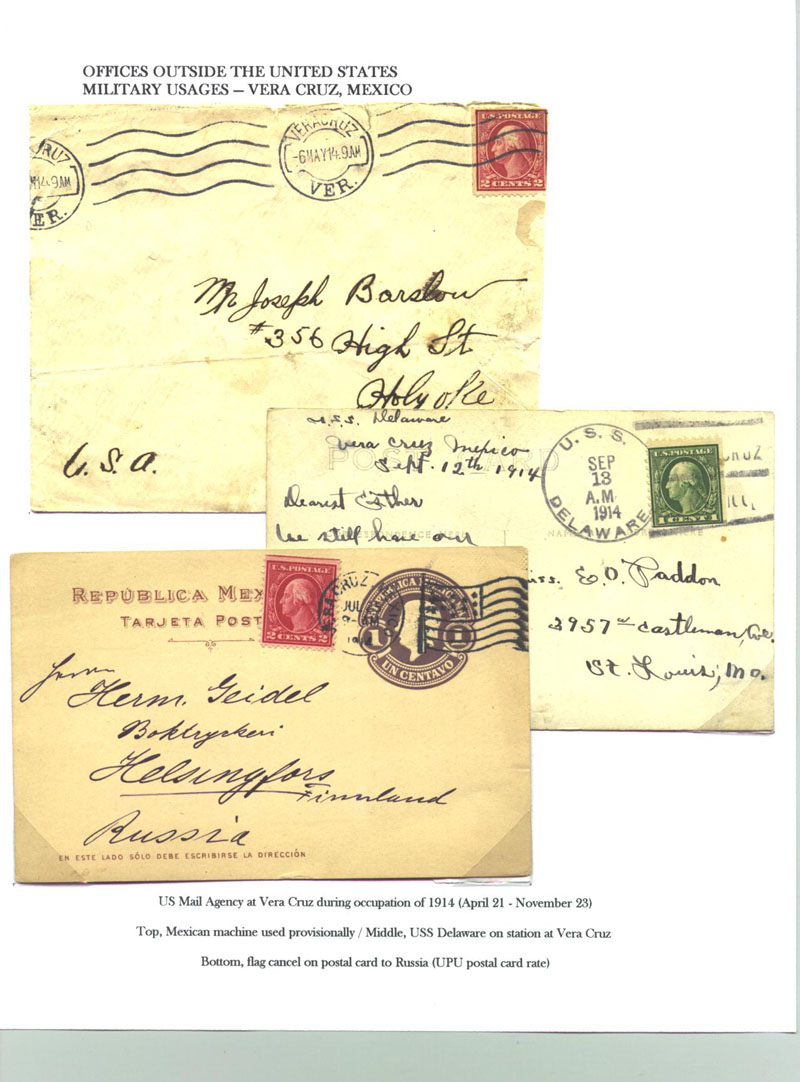 OFFICES OUTSIDE THE UNITED STATES
MILITARY USAGES – VERA CRUZ, MEXICO
VERACRUZ
-6MAY14.9AM
VER.
RUZ
14.9AM
ER.
U.S. POSTAGE
2 CENTS 2
Mr Joseph Barslow
#356 High St
Holyoke
U.S.A.
U.S.S. Delaware
Vera Cruz Mexico
Sept. 12th 1914
Dearest Esther
We still have our
U.S.S.
DELAWARE
SEP
13
A.M.
1914
U.S. POSTAGE
1 CENT 1
RUZ
Miss. E.O. Paddon
3957 Castleman, Ave.
St. Louis, Mo.
REPÚBLICA MEX
TARJETA POST
U.S. POSTAGE
2 CENTS 2
VERA CRUZ
JUL
1
UN CENTAVO
Herrn
Herm. Geidel
Boktryckeri
Helsingfors
Finnland
Russia
EN ESTE LADO SÓLO DEBE ESCRIBIRSE LA DIRECCIÓN
US Mail Agency at Vera Cruz during occupation of 1914 (April 21 - November 23)
Top, Mexican machine used provisionally / Middle, USS Delaware on station at Vera Cruz
Bottom, flag cancel on postal card to Russia (UPU postal card rate)